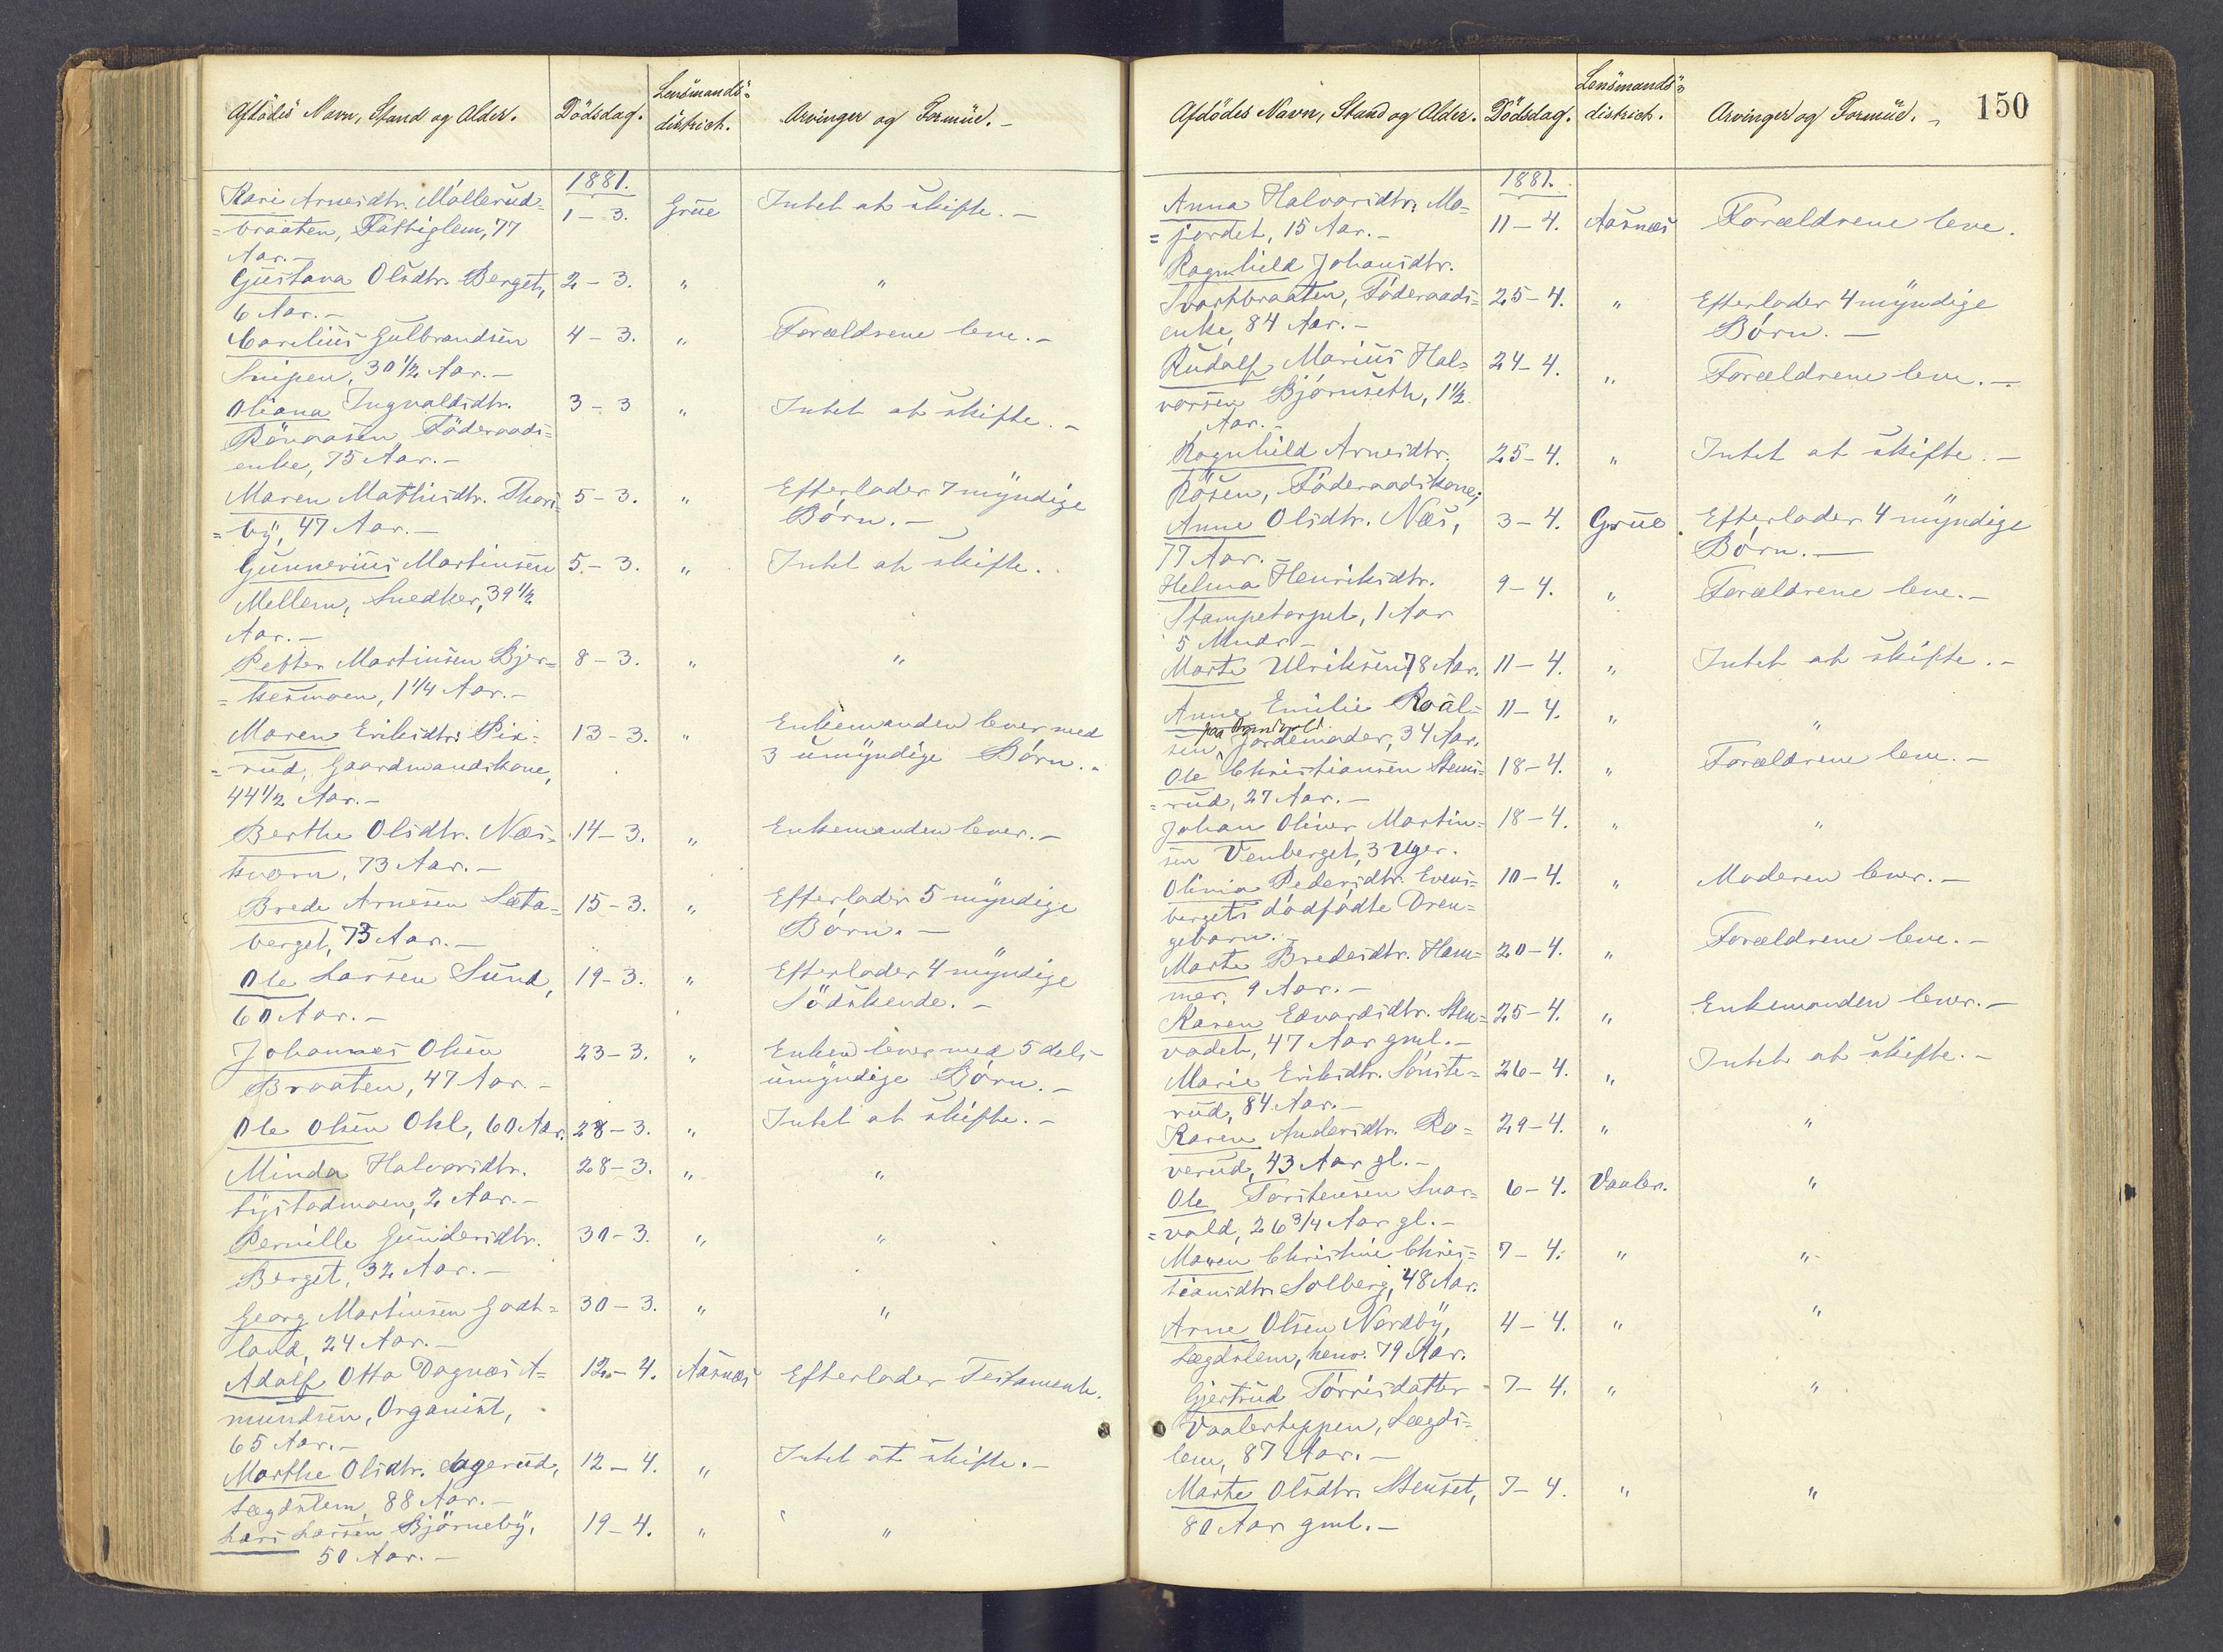 Afdödes Navn, Stand og Alder. Dödsdag. Lensmands= distrikt. Arvinger og Formue. -
1881.
Kari Arnesdtr. Möllerud= 1-3. Grue Intet at skifte. -
=braaten, Fattiglem, 77
Aar. -
Gustava Olsdtr. Berget, 2-3. " "
6 Aar. -
Carelius Gulbrandsen 4-3. " Forældrene leve. -
Snipen, 30 1/2 Aar. -
Oliana Ingvaldsdtr. 3-3 " Intet at skifte. -
Rönaasen Föderaads=
enke, 75 Aar. -
Maren Mathisdtr. Thors= 5-3. " Efterlader 7 myndige
=by, 47 Aar. - Börn. -
Gunnerius Martinsen 5-3. " Intet at skifte.
Mellem, Snedker, 39 1/2
Aar. -
Petter Martinsen Bjer= 8-3. " "
=kesmoen, 1 1/4 Aar. -
Maren Eriksdtr. Pix= 13-3. " Enkemanden lever med
=rud, Gaardmandskone, 3 umyndige Börn. -
44 1/2 Aar. -
Berthe Olsdtr. Næs= 14-3. " Enkemanden lever. -
kværn, 73 Aar. -
Brede Arnesen Sæta= 15-3. " Efterlader 5 myndige
berget, 73 Aar. - Börn. -
Ole Larsen Sund, 19-3. " Efterlader 4 myndige
60 Aar. - Södskende. -
Johannes Olsen 23-3. " Enken lever med 5 dels
Braaten, 47 Aar. - umyndige Börn. -
Ole Olsen Okl, 60 Aar. 28-3. " Intet at skifte. -
Minda Halvorsdtr. 28-3. " "
Lystadmoen, 2 Aar. -
Pernille Gundersdtr. 30-3. " "
Berget, 32 Aar. -
Georg Martinsen Godt= 30-3. " "
land, 24 Aar. -
Adolf Otto Dagnæs A= 12-4. Aasnæs Efterlader Testament.
mundsen, Organist,
65 Aar. -
Marthe Olsdtr. Aagerud, 12-4. " Intet at skifte. -
Lægdslem, 88 Aar. -
Lars Larsen Björneby, 19-4. " "
50 Aar. -
150
Afdödes Navn, Stand og Alder. Dödsdag. Lensmands= distrikt. Arvinger og Formue. -
1881.
Anna Halvorsdtr. Mo= 11-4. Aasnæs Forældrene leve.
=jordet, 15 Aar. -
Ragnhild Johansdtr.
Svartbraaten, Föderaads= 25-4. " Efterlader 4 myndige
enke, 84 Aar. - Börn. -
Rudolf Marius Hal= 24-4. " Forældrene leve. -
vorsen Björnseth, 1 1/2
Aar. -
Ragnhild Arnesdtr. 25-4. " Intet at skifte. -
Rösen, Föderaadskone,
Anne Olsdtr. Næs, 3-4. Grue. Efterlader 4 myndige
77 Aar. - Börn. -
Helma Henriksdtr. 9-4. " Forældrene leve. -
Stampetorpet, 1 Aar
5 Mndr. -
Marte Ulriksen 78 Aar. 11-4. " Intet at skifte. -
Anne Emilie Roäl= 11-4. " "
paa
sen, Jordemoder, 34 Aar.
Ole Christiansen Stens= 18-4. " Forældrene leve. -
=rud, 27 Aar. -
Johan Oliver Martin= 18-4. " "
sen Venberget, 3 Uger.
Olivia Pedersdtr. Evens= 10-4. " Moderen lever. -
bergets dödfödte Dren=
gebarn. -
Marte Bredesdtr. Ham= 20-4. " Forældrene leve. -
mer, 9 Aar. -
Karen Edvardsdtr. Sten= 25-4. " Enkemanden lever. -
vadet, 47 Aar gml. -
Marie Eriksdtr. Sönste= 26-4. " Intet at skifte. -
rud, 84 Aar. -
Karen Andersdtr. Ro= 29-4. " "
verud, 43 Aar gl. -
Ole Torstensen Snar= 6-4. Vaaler. "
=vold, 26 3/4 Aar gl. -
Maren Christine Chris= 7-4. " "
tiansdtr. Solberg, 48 Aar.
Arne Olsen Nordby, 4-4. " "
Lægdslem, henv. 79 Aar.
Gjertrud Törrisdatter 7-4. " "
Vaalerteppen, Lægds=
lem, 87 Aar. -
Marte Olsdtr. Stenset, 7-4. " "
80 Aar gml. -